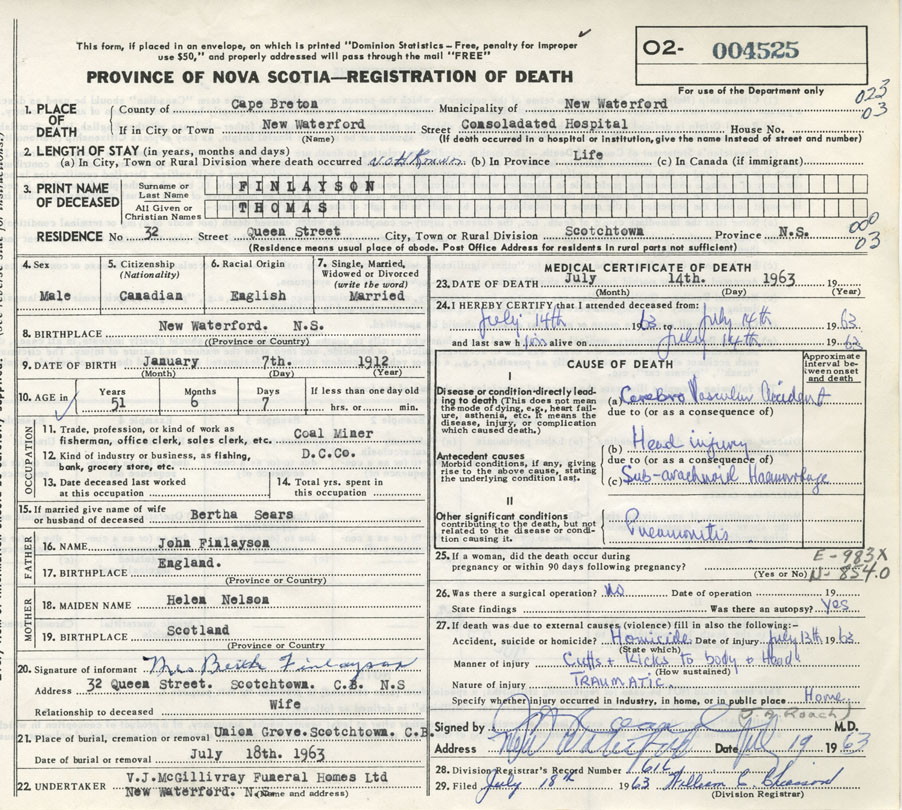 This form, if placed in an envelope, on which is printed "Dominion Statistics—Free, penalty for improper
use $50," and properly addressed will pass through the mail "FREE"
O2- 004525
For use of the Department only
PROVINCE OF NOVA SCOTIA—REGISTRATION OF DEATH
023
03
1. PLACE OF DEATH
County of Cape Breton Municipality of New Waterford
If in City or Town New Waterford Street Consoladated Hospital House No.
(Name) (If death occurred in a hospital or institution, give the name instead of street and number)
2. LENGTH OF STAY (in years, months and days)
(a) In City, Town or Rural Division where death occurred (b) In Province Life (c) In Canada (if immigrant)
3. PRINT NAME OF DECEASED
Surname or Last Name FINLAYSON
All Given or Christian Names THOMAS
000
03
RESIDENCE No 32 Street Queen Street City, Town or Rural Division Scotchtown Province N.S.
(Residence means usual place of abode. Post Office Address for residents in rural parts not sufficient)
4. Sex Male
5. Citizenship (Nationality) Canadian
6. Racial Origin English
7. Single, Married, Widowed or Divorced (write the word) Married
8. BIRTHPLACE New Waterford. N.S.
(Province or Country)
9. DATE OF BIRTH January 7th. 1912
(Month) (Day) (Year)
10. AGE in Years 51 Months 6 Days 7 If less than one day old hrs. or min.
OCCUPATION
11. Trade, profession, or kind of work as fisherman, office clerk, sales clerk, etc. Coal Miner
12. Kind of industry or business, as fishing, bank, grocery store, etc. D.C.Co.
13. Date deceased last worked at this occupation
14. Total yrs. spent in this occupation
15. If married give name of wife or husband of deceased Bertha Sears
FATHER
16. NAME John Finlayson
17. BIRTHPLACE England.
(Province or Country)
MOTHER
18. MAIDEN NAME Helen Nelson
19. BIRTHPLACE Scotland
(Province or Country)
20. Signature of informant Mrs Finlayson
Address 32 Queen Street. Scotchtown. C.B. N.S
Relationship to deceased Wife
21. Place of burial, cremation or removal Union Grove.Scotchtown. C.B.
Date of burial or removal July 18th. 1963
22. UNDERTAKER V.J.McGillivray Funeral Homes Ltd
New Waterford. N.S. (Name and address)
MEDICAL CERTIFICATE OF DEATH
23. DATE OF DEATH July 14th. 1963 19
(Month) (Day) (Year)
24. I HEREBY CERTIFY that I attended deceased from:
July 14th 1963 to July 14th 1963
and last saw him alive on July 14th 1963
CAUSE OF DEATH
Approximate interval between onset and death
I
Disease or condition directly leading to death (This does not mean the mode of dying, e.g., heart failure, asthenia, etc. It means the disease, injury, or complication which caused death.)
(a) Cerebro Vascular Accident
due to (or as a consequence of)
(b) Head injury
Antecedent causes
Morbid conditions, if any, giving rise to the above cause, stating the underlying condition last.
due to (or as a consequence of)
(c) Sub-arachnoid Haemorrhage
II
Other significant conditions contributing to the death, but not related to the disease or condition causing it.
Pneumonitis
25. If a woman, did the death occur during pregnancy or within 90 days following pregnancy?
(Yes or No)
E-983X
N-854.0
26. Was there a surgical operation? No Date of operation 19
State findings Was there an autopsy? yes
27. If death was due to external causes (violence) fill in also the following:-
Accident, suicide or homicide? Homicide Date of injury July 13th 1963
(State which)
Manner of injury Cuffs + Kicks to body + Head
(How sustained)
Nature of injury TRAUMATIC
Specify whether injury occurred in industry, in home, or in public place Home
Signed by (J. A. Roach) M.D.
Address New Waterford Date Jul 19 1963
28. Division Registrar's Record Number 616
29. Filed July 18th 1963 William
(Division Registrar)